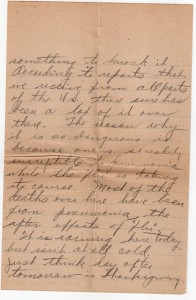 something to knock it
According to reports that
we receive from all parts
of the U.S. there sure has
been a lot of it over
there. The reason why
it is so dangerous is
because one is so
to pneumonia
while the flu is taking
its course. Most of the
deaths over here have been
from pneumonia, the
after effects of "Flu".
It is raining here today
but isn't at all cold,
Just think day after
tomorrow is Thanksgiving